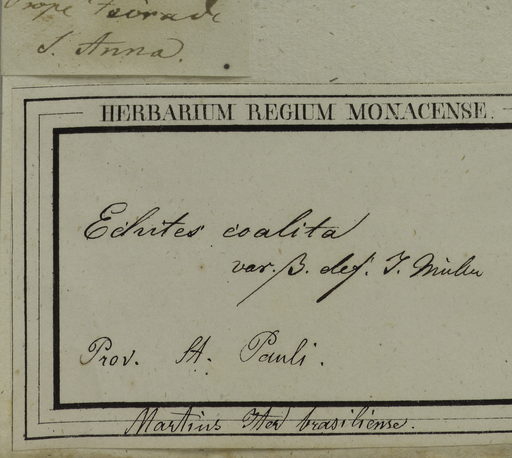 S. Anna.
HERBARIUM REGIUM MONACENSE.
Echites coalita
var. β. def. J. Müller
Prov. St. Pauli.
Martius Iter brasiliense.